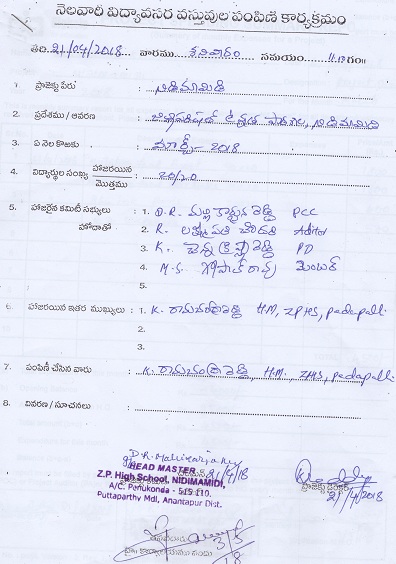 నెలవారీ విద్యావసర వస్తువుల పంపిణి కార్యక్రమం
తేది: 21/04/2018 వారము శనివారం సమయం 11.10గం॥
1. ప్రాజెక్టు పేరు : నిడిమామిడి
2. ప్రదేశము / ఆవరణ : జిల్లాపరిషత్ ఉన్నత పాఠశాల, నిడిమామిడి
3. ఏ నెల కొఱకు : మార్చి- 2018
4. విద్యార్థుల సంఖ్య హాజరయిన / మొత్తము : 20/20
5. హాజరైన కమిటీ సభ్యులు : 1. D.R. మల్లికార్జున రెడ్డి PCC
హోదాతో 2. R. లక్ష్మీపతి చౌదరి Aditor
3. K. చెన్నక్రిష్ణారెడ్డి PD
4. M.S. గోపాల్ రావు మెంబర్
5.
6. హాజరయిన ఇతర ముఖ్యులు : 1. K. రామచంద్రారెడ్డి H.M, ZPHS, pedapalli
2.
3.
7. పంపిణీ చేసిన వారు : K. రామచంద్రారెడ్డి, H.M. ZPHS, pedapalli
8. వివరణ / సూచనలు :
D.R. Mallikarjuna
HEAD MASTER 21/4/18
Z.P. High School, NIDIMAMIDI,
A/C. Penukonda - 515 110.
Puttaparthy Mdl, Anantapur Dist.
ప్రాజెక్టు డైరెక్టర్
21/4/2018